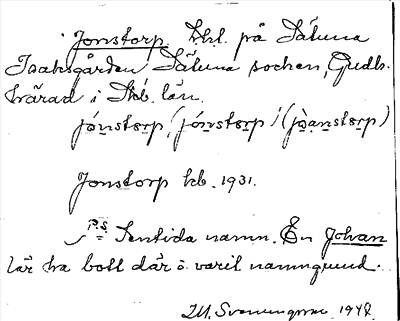 Jonstorp. lhl. på Sätuna
Isaksgården, Sätuna socken, Gudh.
härad i Skb. län.
jónstorp, (jónstorp / (jòanstorp)
Jonstorp kb. 1931.
P.S. Sentida namn. En Johan
lär ha bott där o. varit namngivand.
M. Svenungsson. 1948.